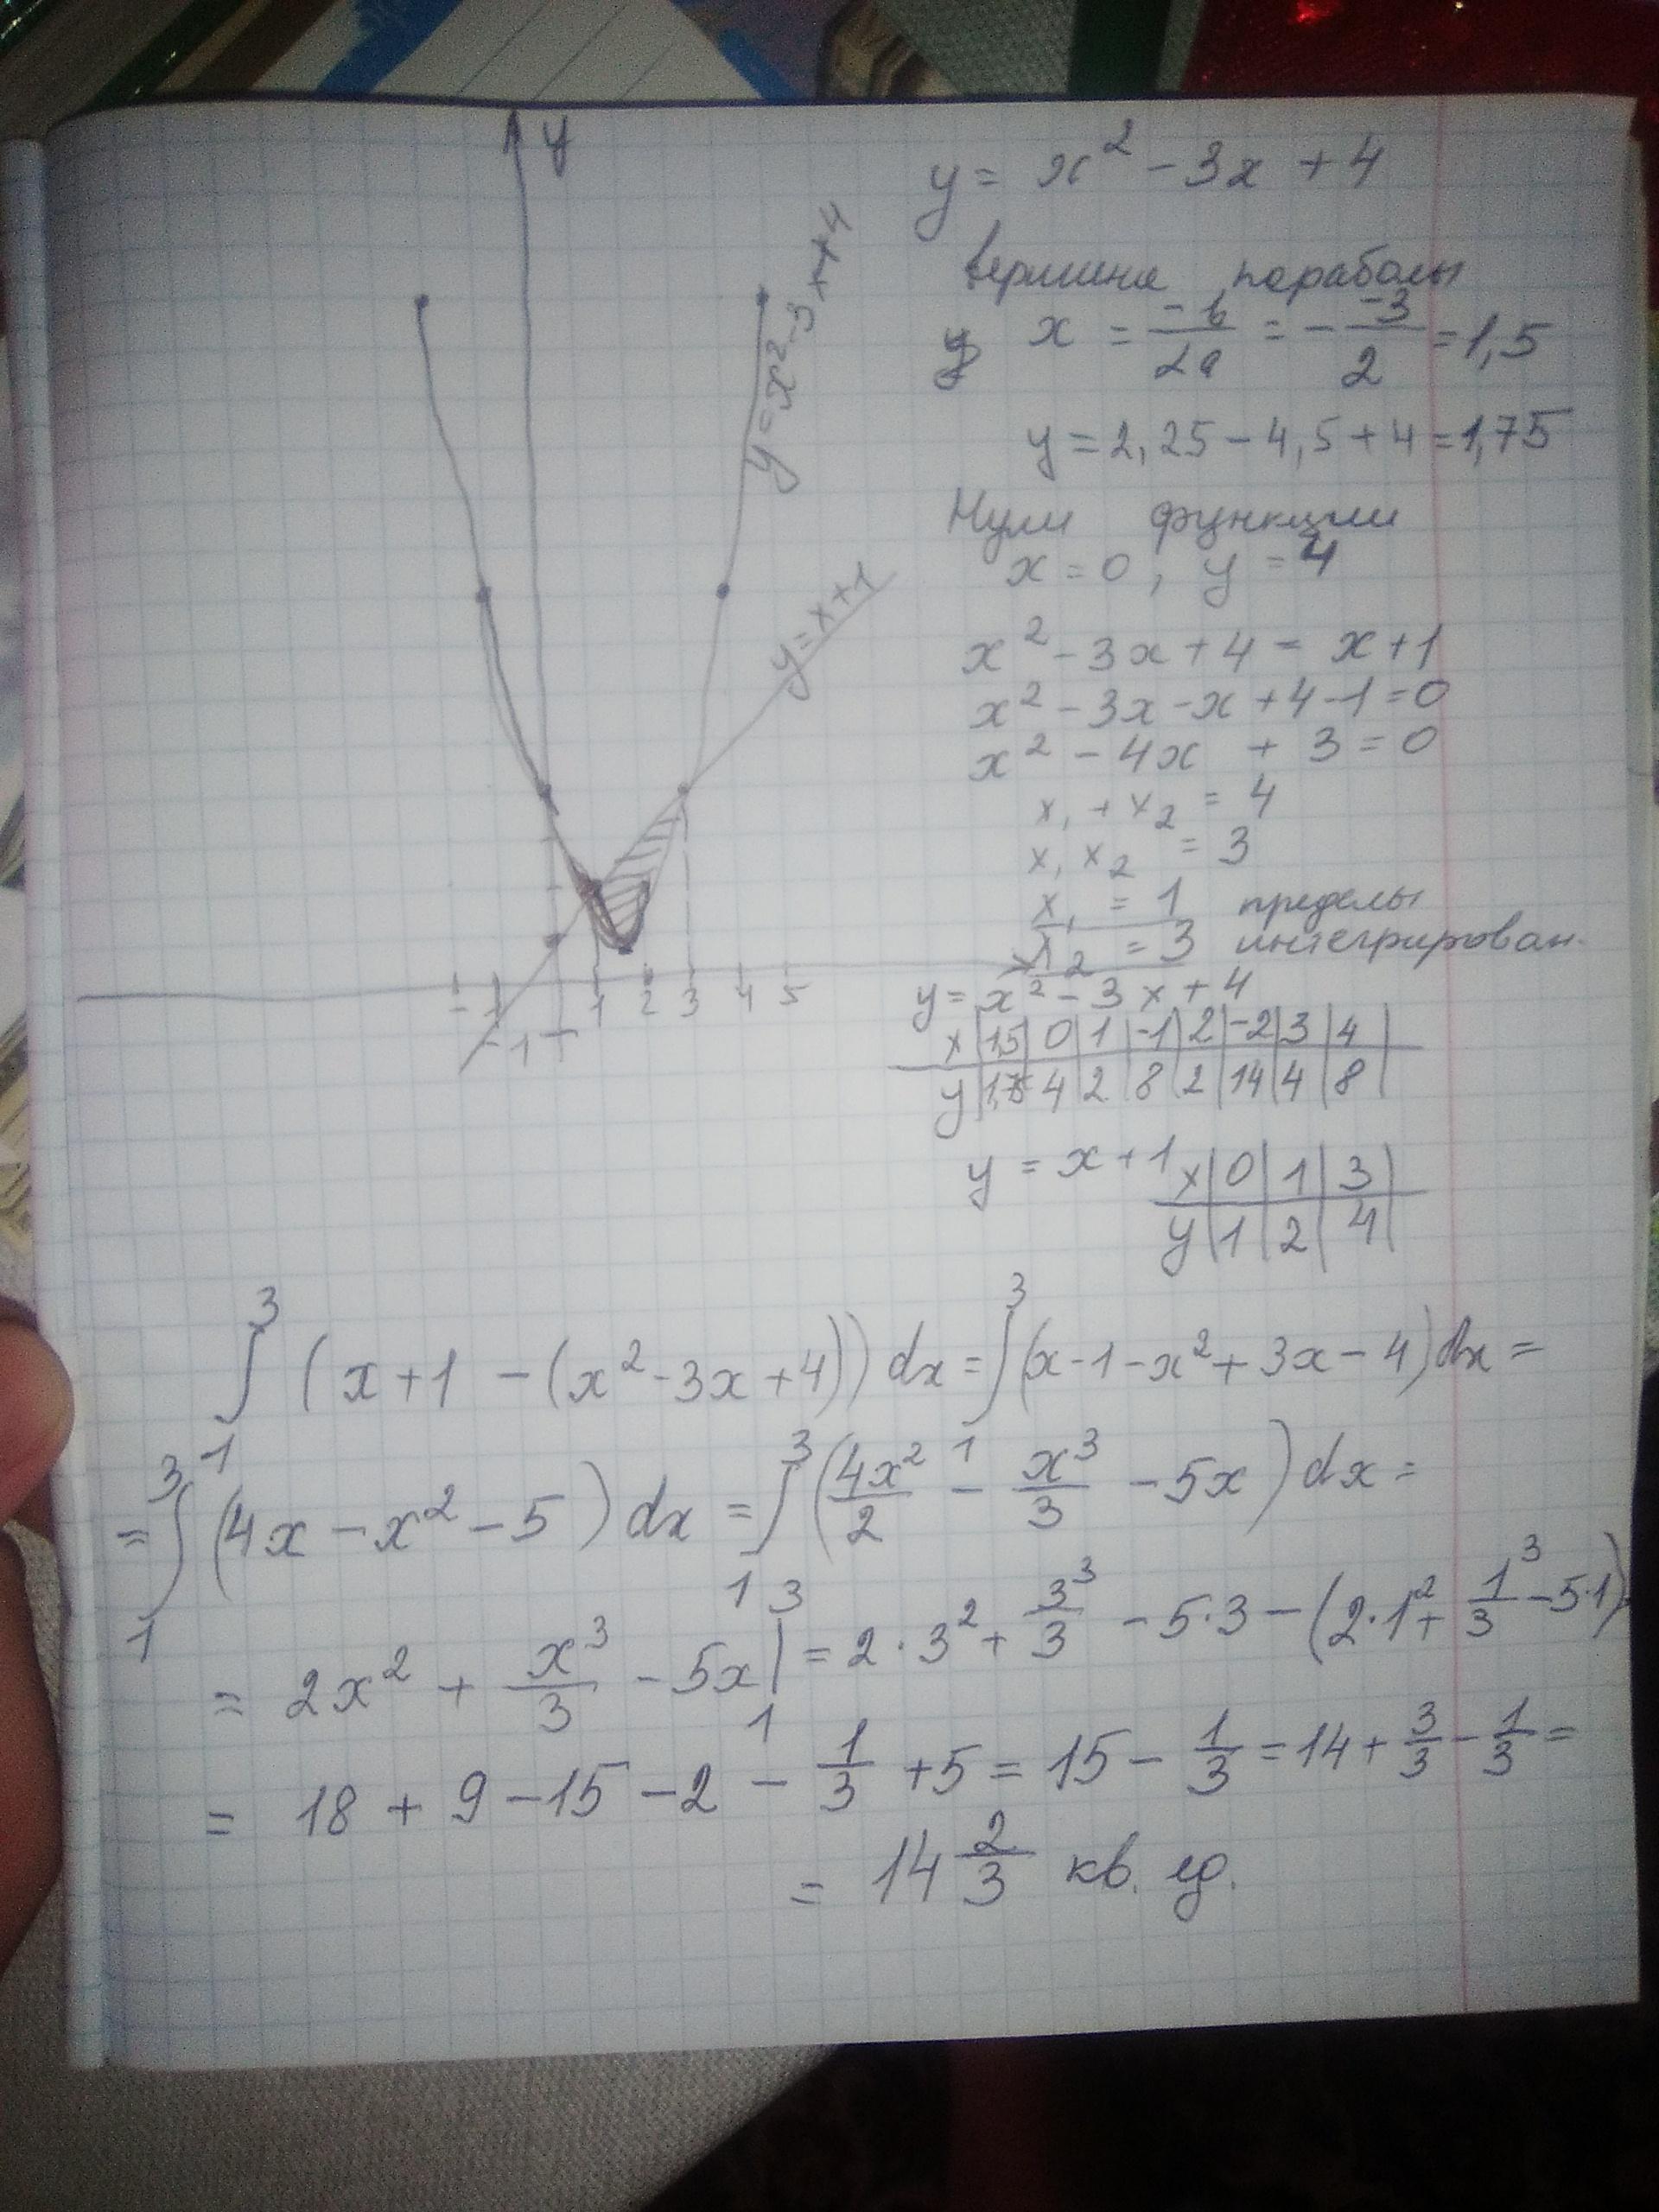 y
y = x² - 3x + 4
y = x + 1
-1
1 2 3 4 5
-1
y = x² - 3x + 4
вершина параболы
x = -b/2a = - -3/2 = 1,5
y = 2,25 - 4,5 + 4 = 1,75
Нули функции
x = 0, y = 4
x² - 3x + 4 = x + 1
x² - 3x - x + 4 - 1 = 0
x² - 4x + 3 = 0
x₁ + x₂ = 4
x₁ x₂ = 3
x₁ = 1 пределы
x₂ = 3 интегрирован.
y = x² - 3x + 4
x | 1,5 | 0 | 1 | -1 | 2 | -2 | 3 | 4 |
y | 1,75 | 4 | 2 | 8 | 2 | 14 | 4 | 8 |
y = x + 1
x | 0 | 1 | 3 |
y | 1 | 2 | 4 |
∫₁³ (x + 1 - (x² - 3x + 4)) dx = ∫₁³ (x - 1 - x² + 3x - 4) dx =
= ∫₁³ (4x - x² - 5) dx = ∫₁³ (4x²/2 - x³/3 - 5x) dx =
= 2x² + x³/3 - 5x |₁³ = 2·3² + 3³/3 - 5·3 - (2·1² + 1³/3 - 5·1)
= 18 + 9 - 15 - 2 - 1/3 + 5 = 15 - 1/3 = 14 + 3/3 - 1/3 =
= 14 2/3 кв. ед.